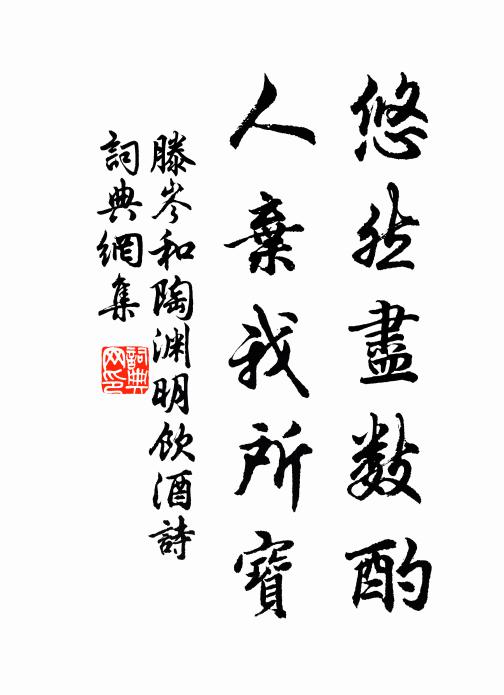 悠然盡數酌
人棄我所寶
滕岑和陶淵明飲酒詩
詞典網集
詞典網印